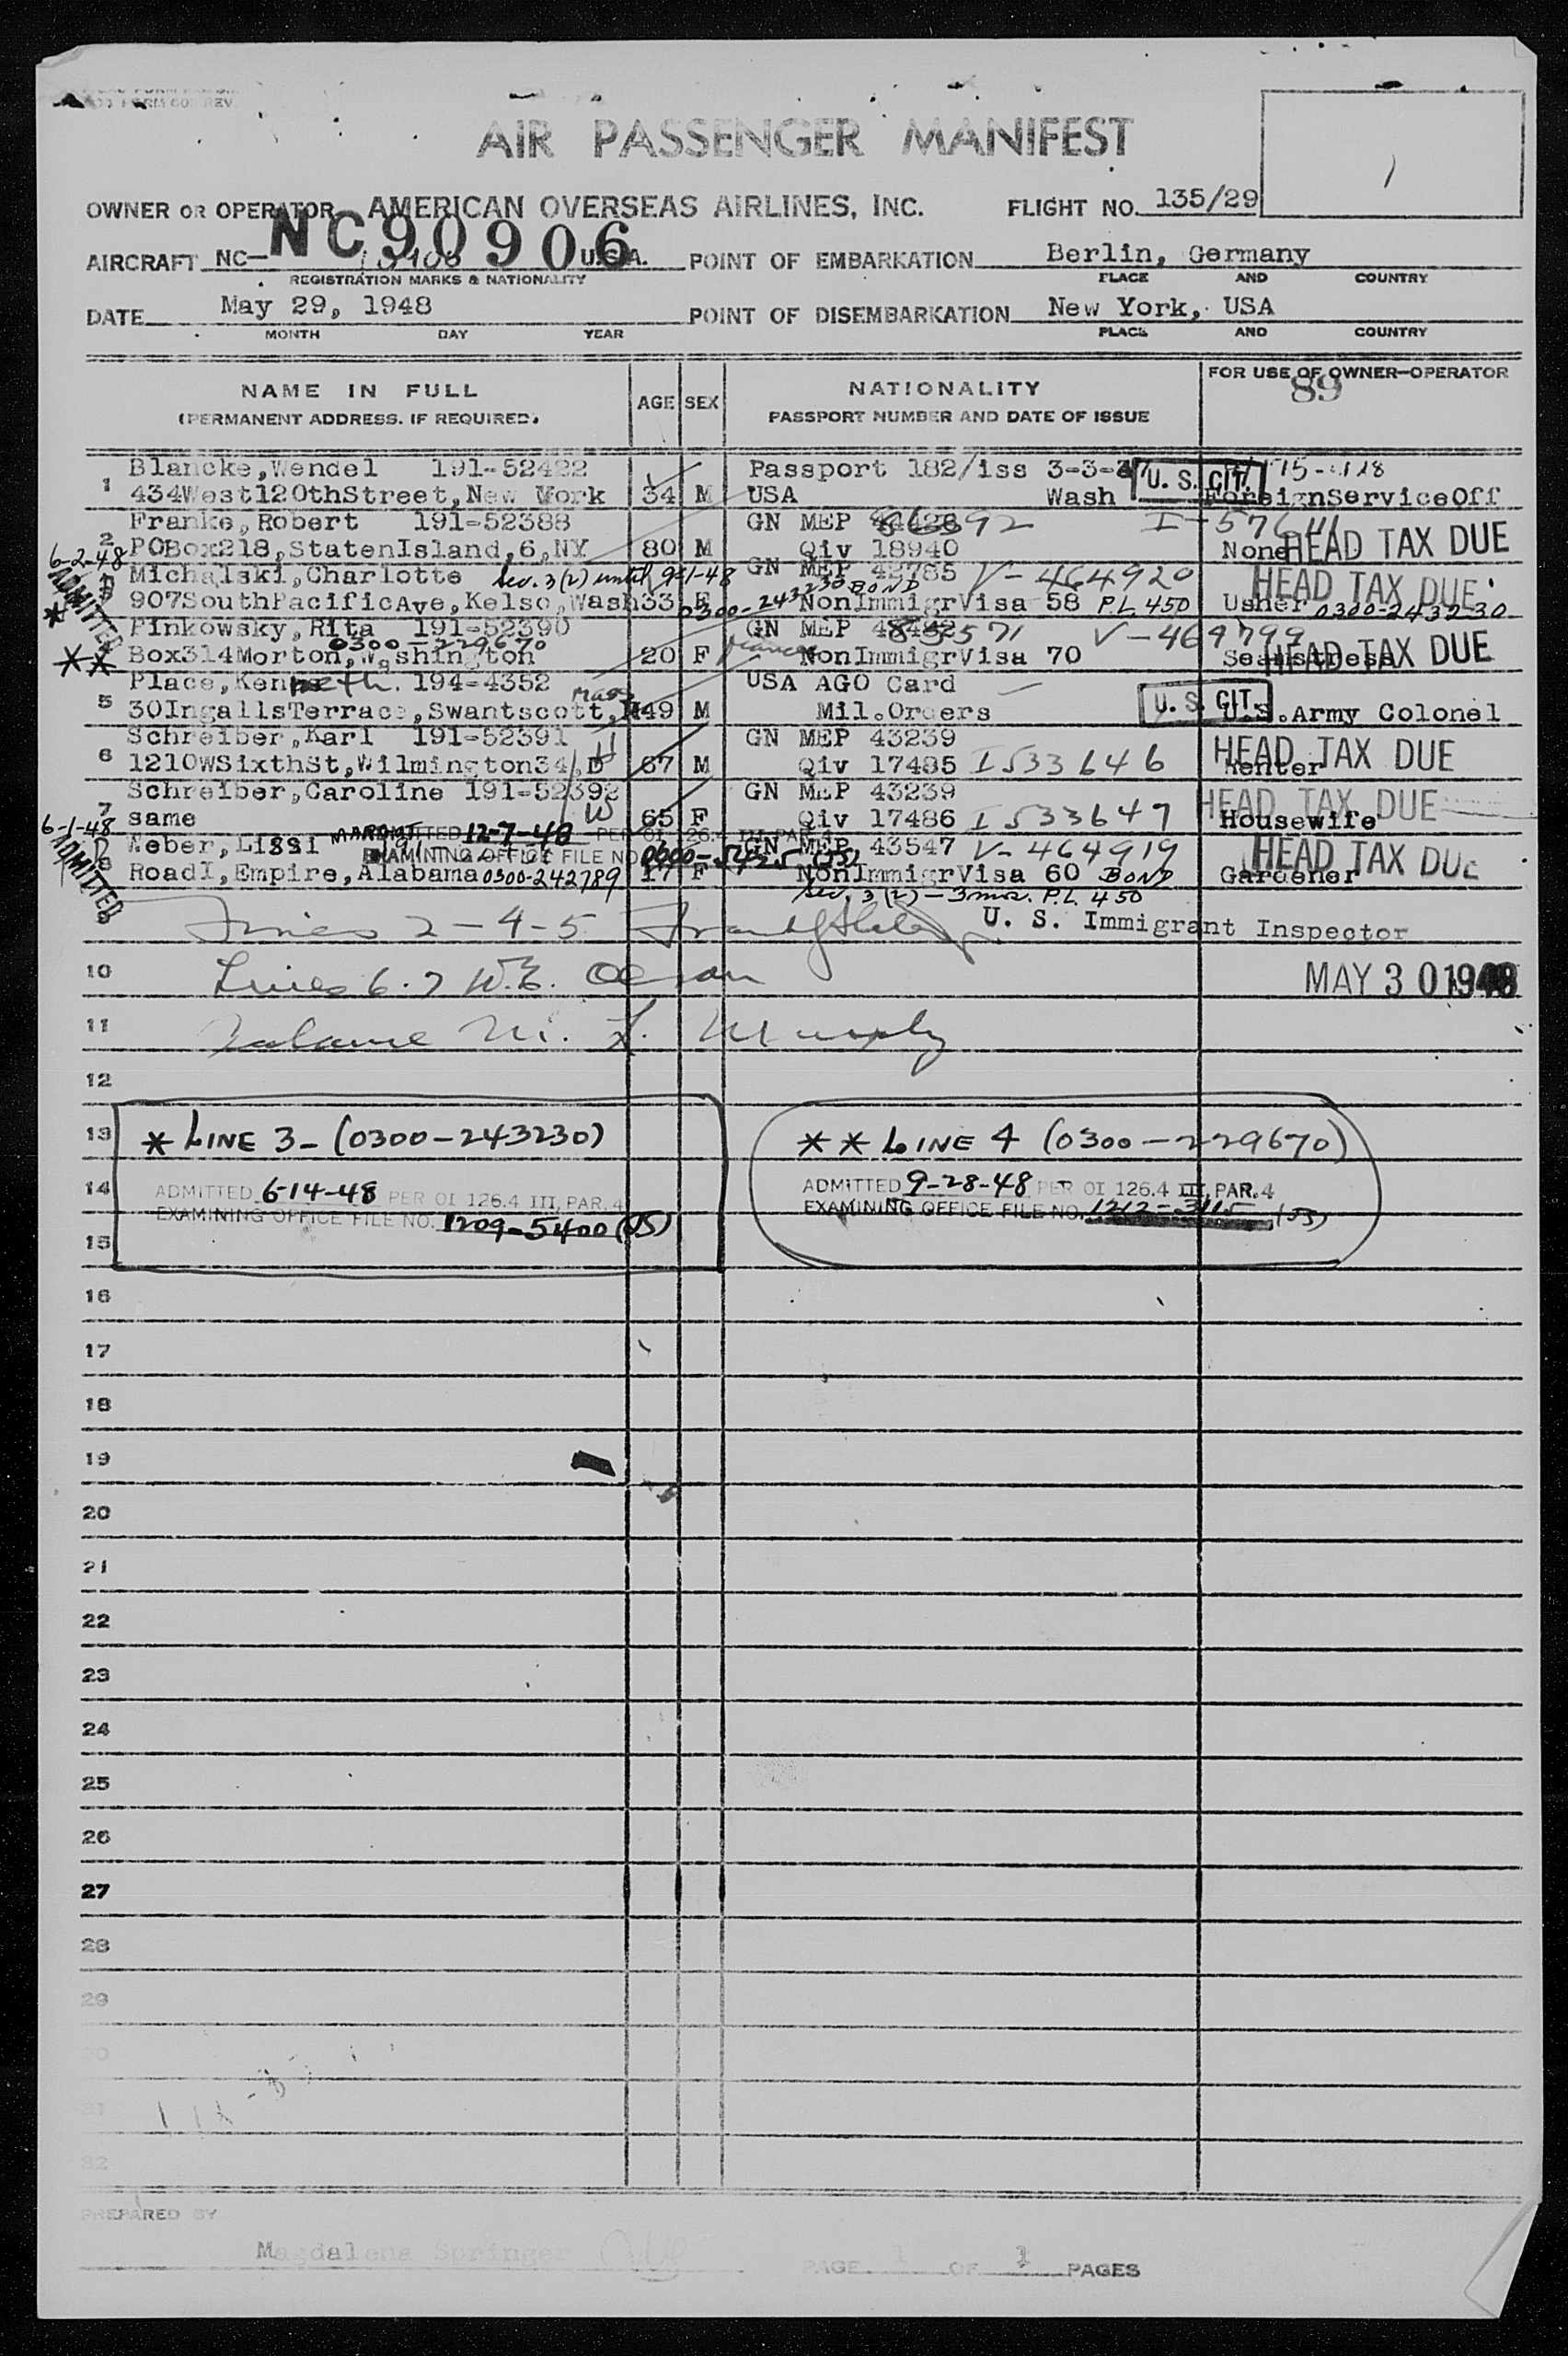 AIR PASSENGER MANIFEST
1
OWNER OR OPERATOR AMERICAN OVERSEAS AIRLINES, INC. FLIGHT NO. 135/29
NC90906
AIRCRAFT NC- U.S.A. POINT OF EMBARKATION Berlin, Germany
REGISTRATION MARKS & NATIONALITY PLACE AND COUNTRY
DATE May 29, 1948 POINT OF DISEMBARKATION New York, USA
MONTH DAY YEAR PLACE AND COUNTRY
NAME IN FULL AGE SEX NATIONALITY FOR USE OF OWNER-OPERATOR
(PERMANENT ADDRESS. IF REQUIRED. PASSPORT NUMBER AND DATE OF ISSUE 89
Blancke,Wendel 191-52422 Passport 182/iss 3-3-
1 434West120thStreet,New York 34 M USA Wash U. S. CIT. ForeignServiceOff
Franke,Robert 191-52388 GN MEP
2 POBox218,StatenIsland,6,NY 80 M Qiv 18940 None HEAD TAX DUE
6-2-48 ADMITTED
Michalski,Charlotte Sec. 3(2) until 9-1-48 GN MEP 42785 V-464920 HEAD TAX DUE
* 907SouthPacificAve,Kelso,Wash 33 F 0300-243230 BOND NonImmigrVisa 58 P.L. 450 Usher 0300-243230
Pinkowsky,Rita 191-52390 GN MEP V-469799
0300-229670
** Box314Morton,Washington 20 F NonImmigrVisa 70 Seamstress HEAD TAX DUE
Place,Kenneth. 194-4352 USA AGO Card
Mass
5 30IngallsTerrace,Swantscott, 49 M Mil.Orders U.S. CIT. U.S.Army Colonel
Schreiber,Karl 191-52391 H GN MEP 43239
6 1210WSixthSt,Wilmington34,D 67 M Qiv 17485 I533646 Renter HEAD TAX DUE
Schreiber,Caroline 191-52392 GN MEP 43239
7 same W 65 F Qiv 17486 I533647 Housewife HEAD TAX DUE
6-1-48 ADMITTED
Weber,Lissi ADMITTED 12-7-48 PER OI 126.4 III, PAR. 4 GN MEP 43547 V-464919
EXAMINING OFFICE FILE NO. HEAD TAX DUE
8 RoadI,Empire,Alabama 0300-242789 17 F NonImmigrVisa 60 BOND Gardener
Sec. 3(2)-3 mos. P.L. 450
9 Lines 2-4-5 U. S. Immigrant Inspector
10 Lines 6.7 W.E. MAY 30 1948
11 Balance M. L. Murphy
12
13 * LINE 3-(0300-243230) ** LINE 4 (0300-229670)
14 ADMITTED 6-14-48 PER OI 126.4 III, PAR. 4 ADMITTED 9-28-48 PER OI 126.4 III, PAR. 4
EXAMINING OFFICE FILE NO. 1209-5400(55) EXAMINING OFFICE FILE NO. 1212-3115 (55)
15
16
17
18
19
20
21
22
23
24
25
26
27
28
29
30
31
32
PREPARED BY
Magdalena Springer
PAGE 1 OF 1 PAGES